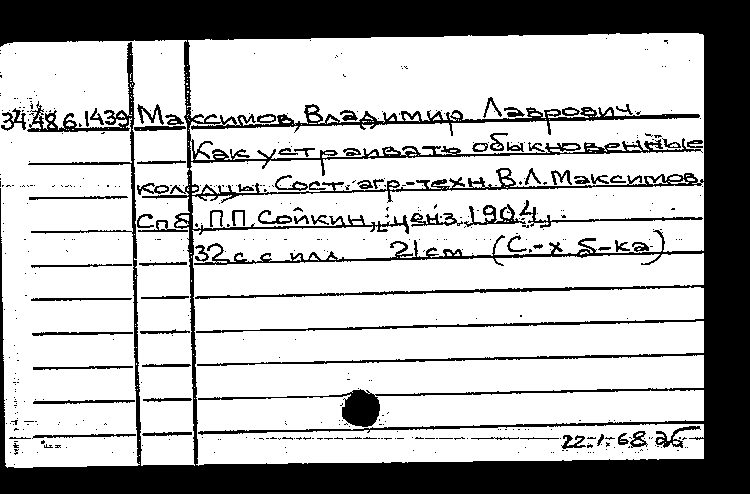 34.48.6.1439 Максимов, Владимир Лаврович.
Как устраивать обыкновенные
колодцы. Сост. агр.-техн. В.Л. Максимов.
Спб., П.П. Сойкин, ценз. 1904.
32 с. с илл. 21 см (С.-х б-ка)
22.1.68